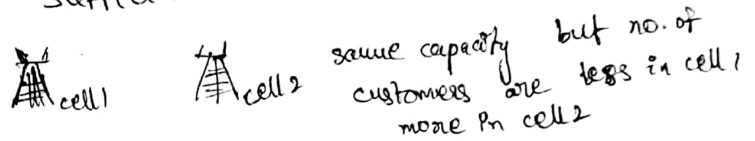 cell1
cell2
same capacity but no. of
customers are less in cell 1
more in cell2